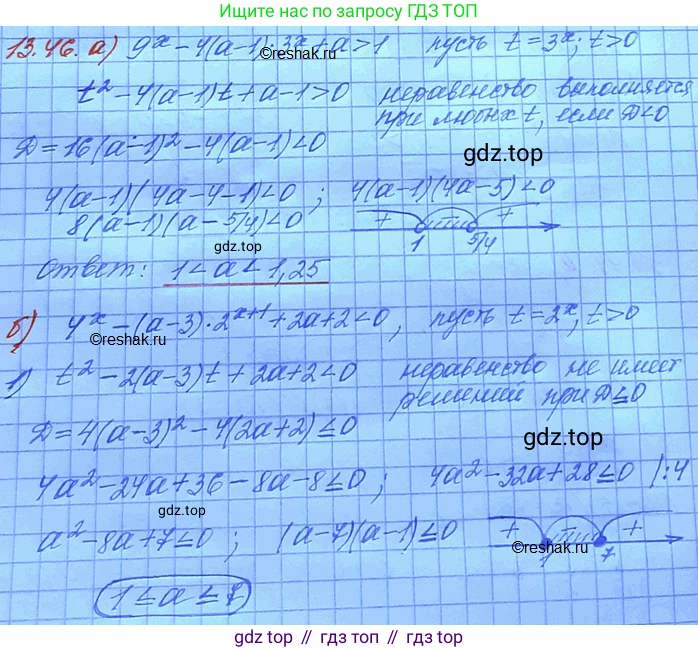 Ищите нас по запросу ГДЗ ТОП
13.46. а) 9^x - 4(a-1)·3^x + a > 1 пусть t = 3^x; t > 0
t² - 4(a-1)t + a - 1 > 0 неравенство выполняется
при любых t, если D < 0
D = 16(a-1)² - 4(a-1) < 0
gdz.top
4(a-1)(4a-4-1) < 0 ; 4(a-1)(4a-5) < 0
8(a-1)(a-5/4) < 0
+ - +
1 5/4
gdz.top
©reshak.ru
Ответ: 1 < a < 1,25
б) 4^x - (a-3)·2^{x+1} + 2a + 2 < 0, пусть t = 2^x; t > 0
©reshak.ru
1) t² - 2(a-3)t + 2a + 2 < 0 неравенство не имеет
решений при D ≤ 0
D = 4(a-3)² - 4(2a+2) ≤ 0
gdz.top
4a² - 24a + 36 - 8a - 8 ≤ 0 ; 4a² - 32a + 28 ≤ 0 |:4
gdz.top
a² - 8a + 7 ≤ 0 ; (a-7)(a-1) ≤ 0
+ - +
1 7
©reshak.ru
1 ≤ a ≤ 7
gdz.top // гдз топ // gdz top